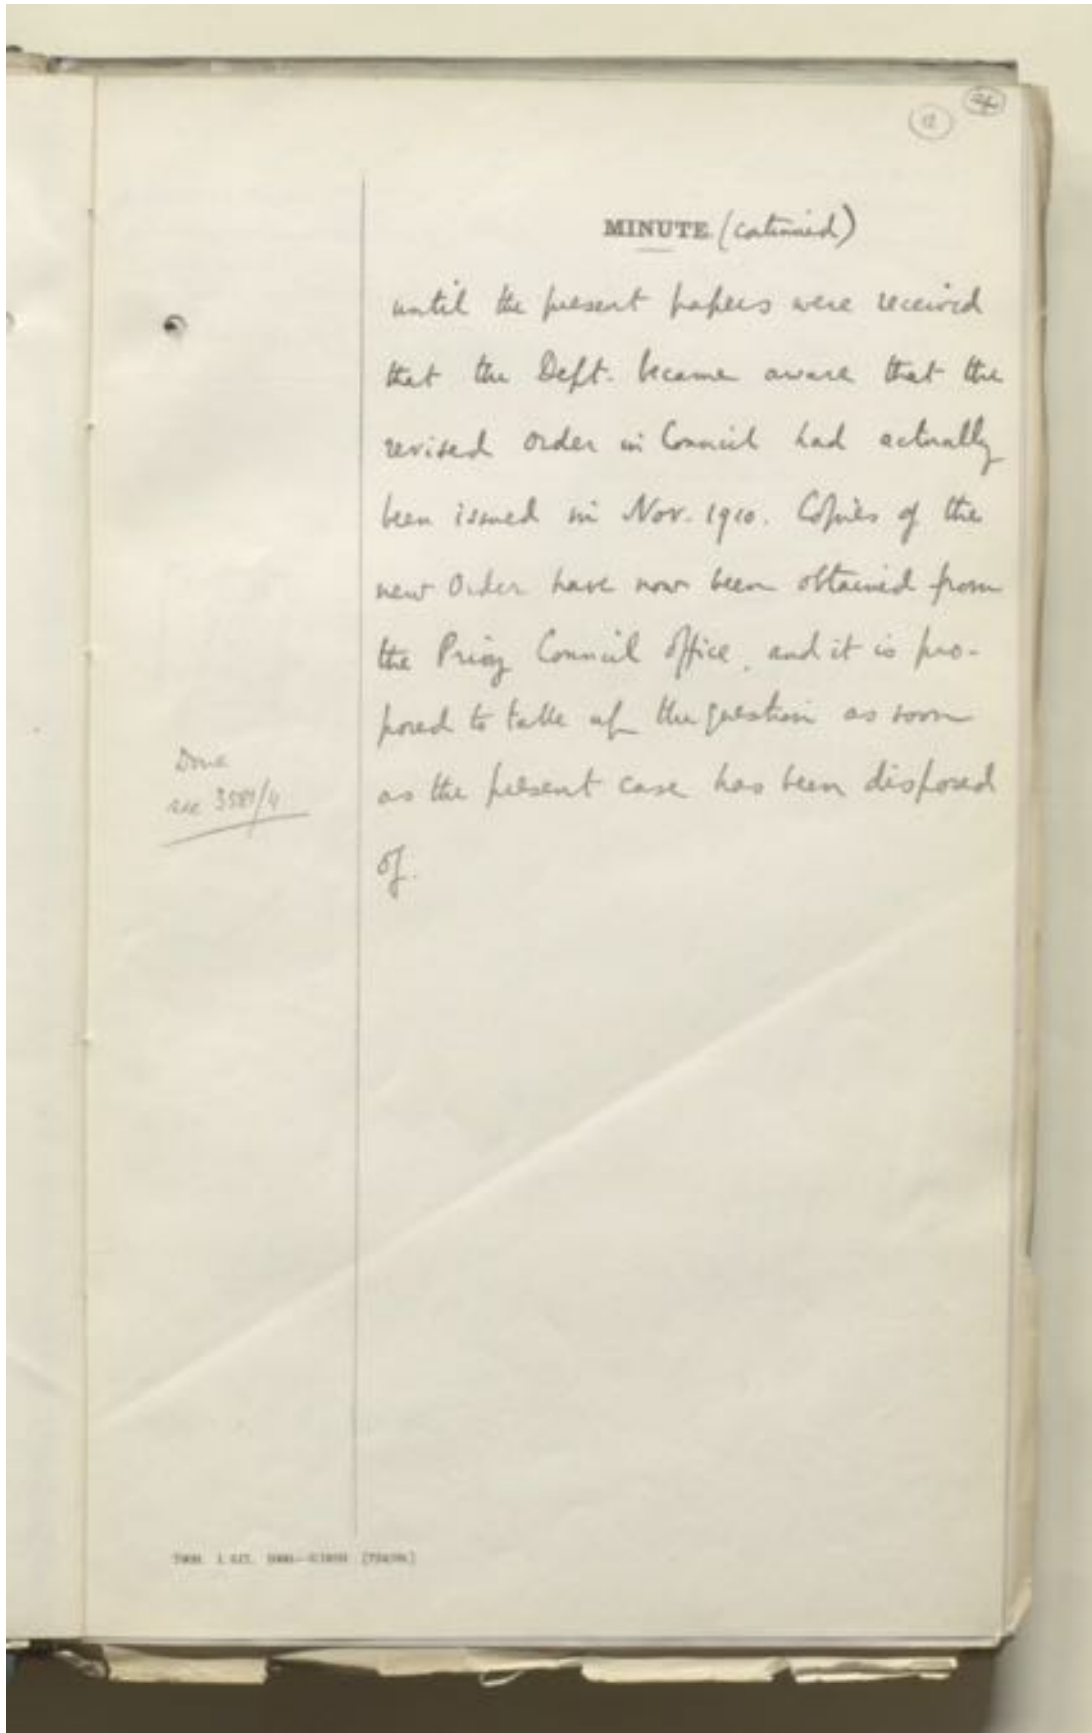 12
MINUTE (continued)
until the present papers were received
that the Dept. became aware that the
revised Order in Council had actually
been issued in Nov. 1910. Copies of the
new Order have now been obtained from
the Privy Council Office, and it is pro-
posed to take up the question as soon
as the present case has been disposed
of.
Done
see